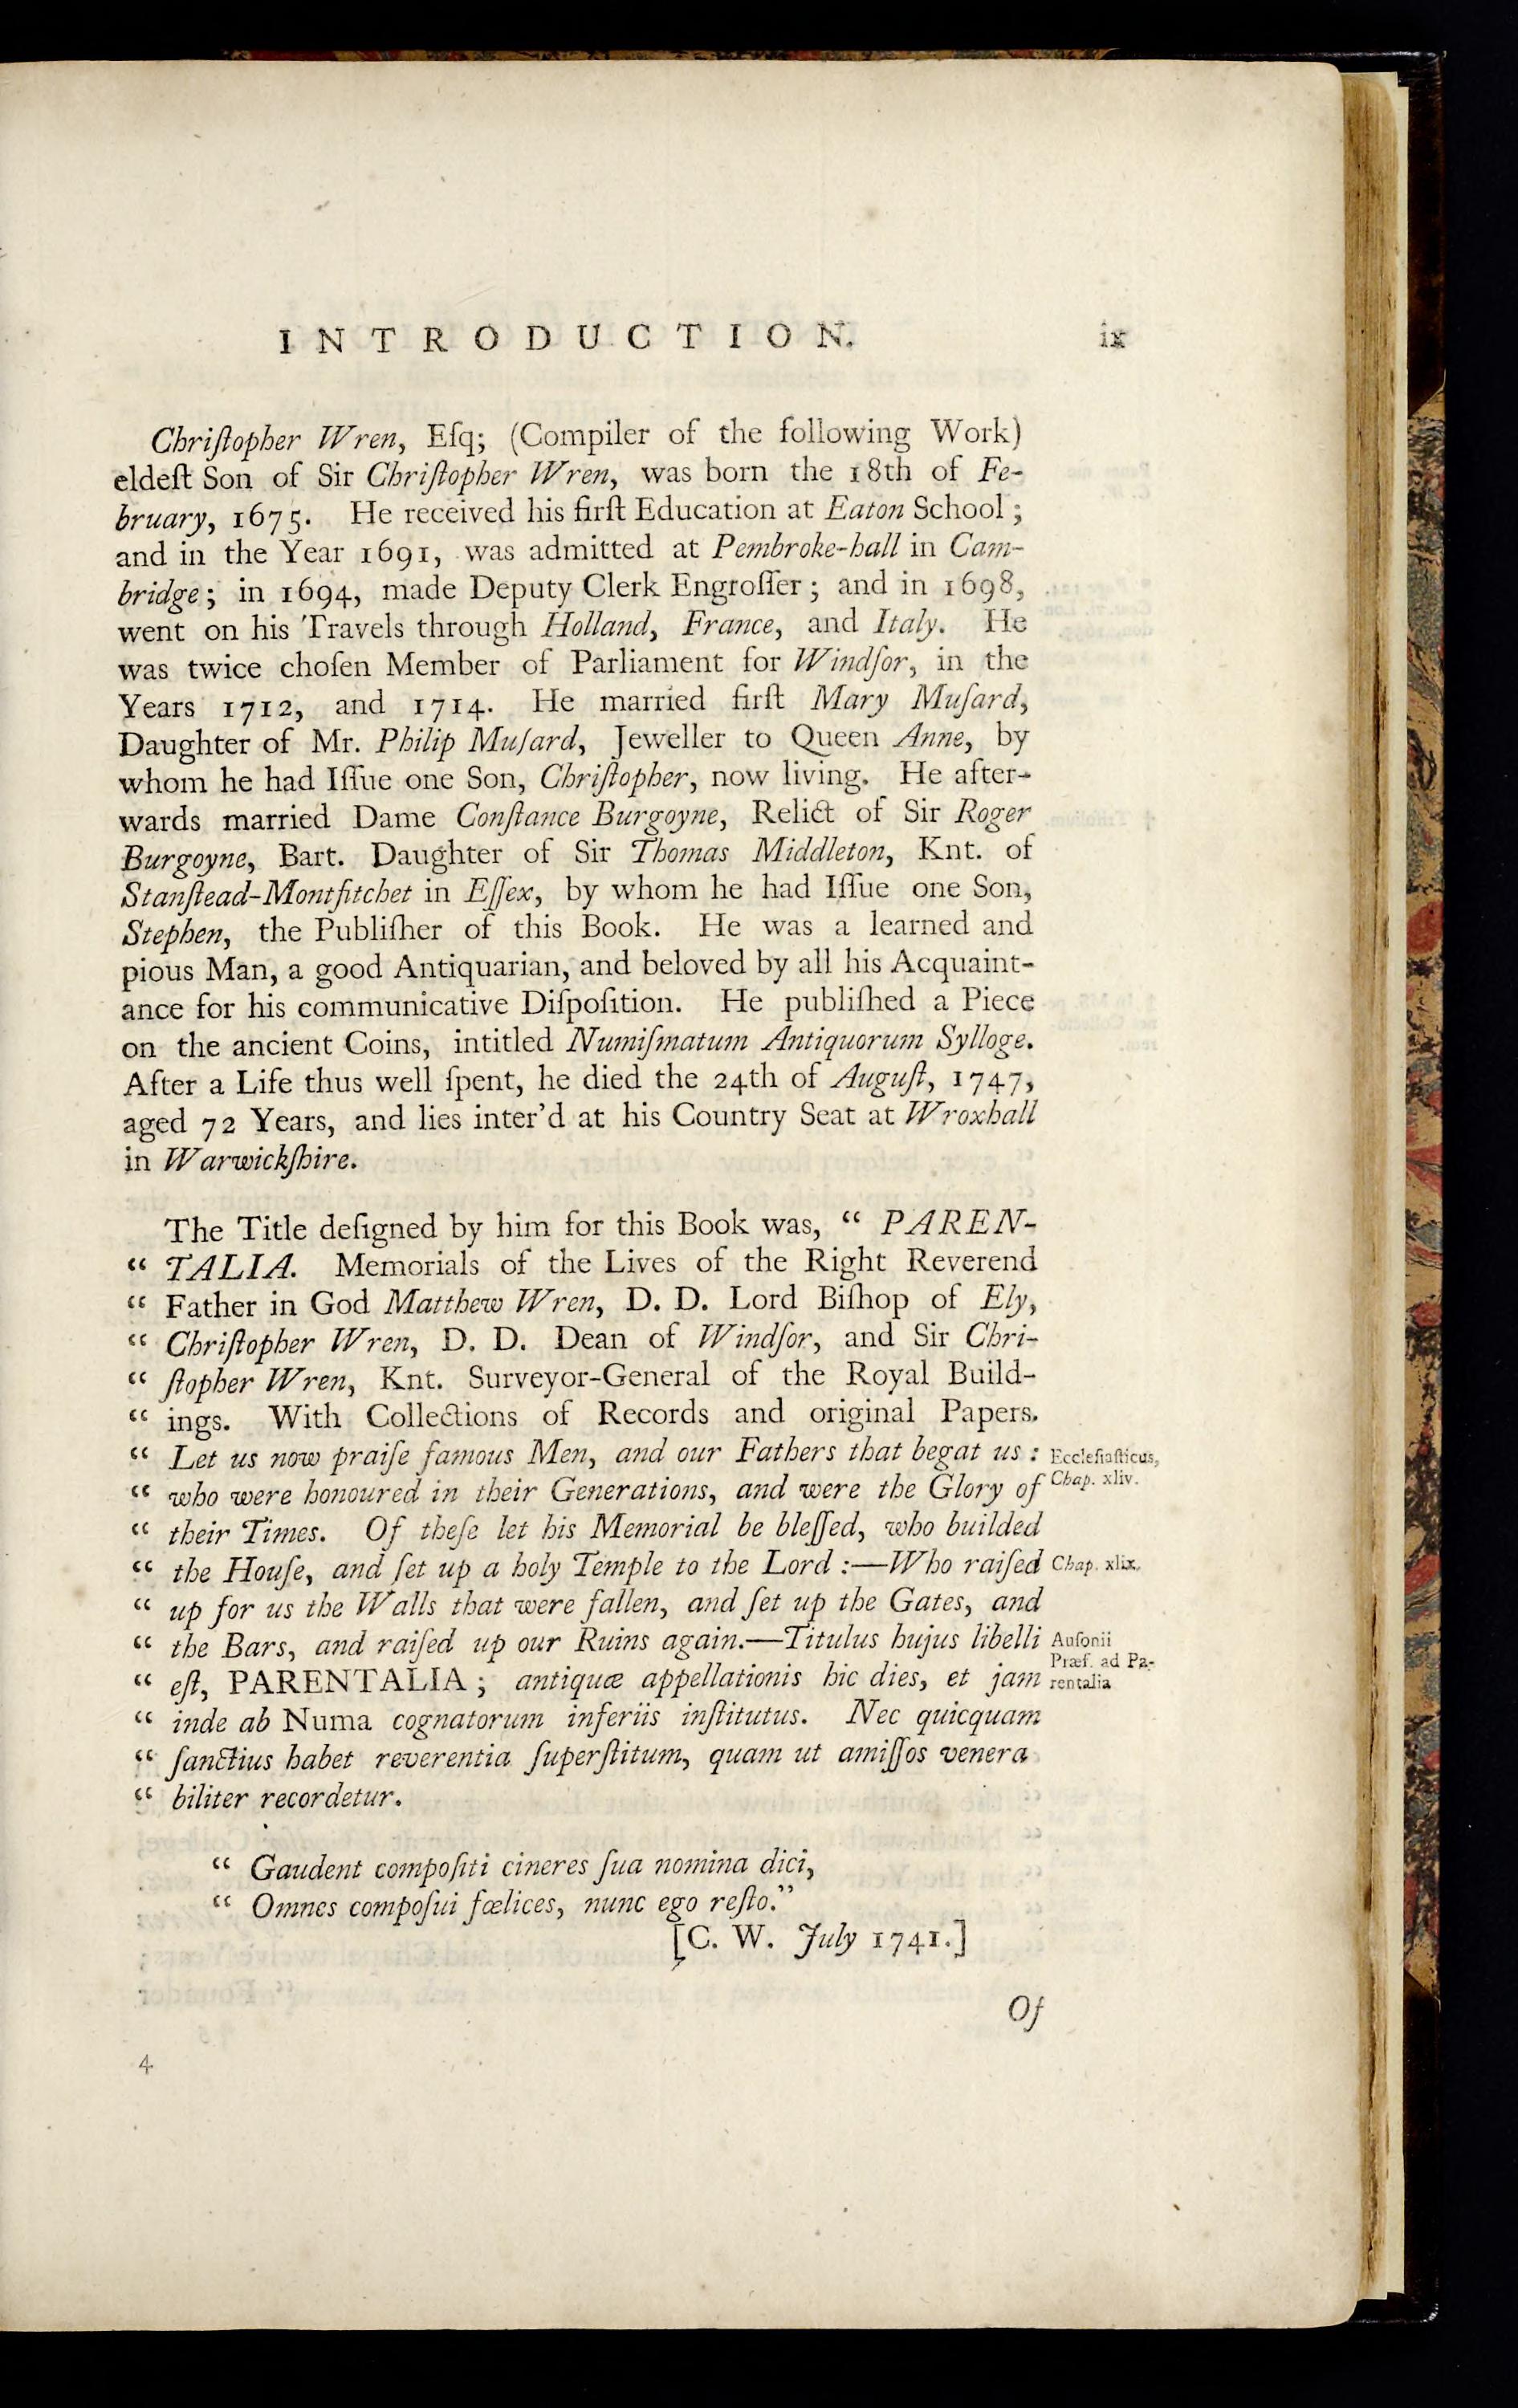 INTRODUCTION. ix
Chriſtopher Wren, Eſq; (Compiler of the following Work)
eldeſt Son of Sir Chriſtopher Wren, was born the 18th of Fe-
bruary, 1675. He received his firſt Education at Eaton School;
and in the Year 1691, was admitted at Pembroke-hall in Cam-
bridge; in 1694, made Deputy Clerk Engroſſer; and in 1698,
went on his Travels through Holland, France, and Italy. He
was twice choſen Member of Parliament for Windſor, in the
Years 1712, and 1714. He married firſt Mary Muſard,
Daughter of Mr. Philip Muſard, Jeweller to Queen Anne, by
whom he had Iſſue one Son, Chriſtopher, now living. He after-
wards married Dame Conſtance Burgoyne, Relict of Sir Roger
Burgoyne, Bart. Daughter of Sir Thomas Middleton, Knt. of
Stanſtead-Montfitchet in Eſſex, by whom he had Iſſue one Son,
Stephen, the Publiſher of this Book. He was a learned and
pious Man, a good Antiquarian, and beloved by all his Acquaint-
ance for his communicative Diſpoſition. He publiſhed a Piece
on the ancient Coins, intitled Numiſmatum Antiquorum Sylloge.
After a Life thus well ſpent, he died the 24th of Auguſt, 1747,
aged 72 Years, and lies inter'd at his Country Seat at Wroxhall
in Warwickſhire.
The Title deſigned by him for this Book was, “ PAREN-
“ TALIA. Memorials of the Lives of the Right Reverend
“ Father in God Matthew Wren, D. D. Lord Biſhop of Ely,
“ Chriſtopher Wren, D. D. Dean of Windſor, and Sir Chri-
“ ſtopher Wren, Knt. Surveyor-General of the Royal Build-
“ ings. With Collections of Records and original Papers.
“ Let us now praiſe famous Men, and our Fathers that begat us: Eccleſiaſticus,
“ who were honoured in their Generations, and were the Glory of Chap. xliv.
“ their Times. Of theſe let his Memorial be bleſſed, who builded
“ the Houſe, and ſet up a holy Temple to the Lord:—Who raiſed Chap. xlix.
“ up for us the Walls that were fallen, and ſet up the Gates, and
“ the Bars, and raiſed up our Ruins again.—Titulus hujus libelli Auſonii
“ eſt, PARENTALIA; antiquæ appellationis hic dies, et jam Præf. ad Pa-
rentalia
“ inde ab Numa cognatorum inferiis inſtitutus. Nec quicquam
“ ſanctius habet reverentia ſuperſtitum, quam ut amiſſos venera
“ biliter recordetur.
“ Gaudent compoſiti cineres ſua nomina dici,
“ Omnes compoſui fœlices, nunc ego reſto.”
[C. W. July 1741.]
Of
4